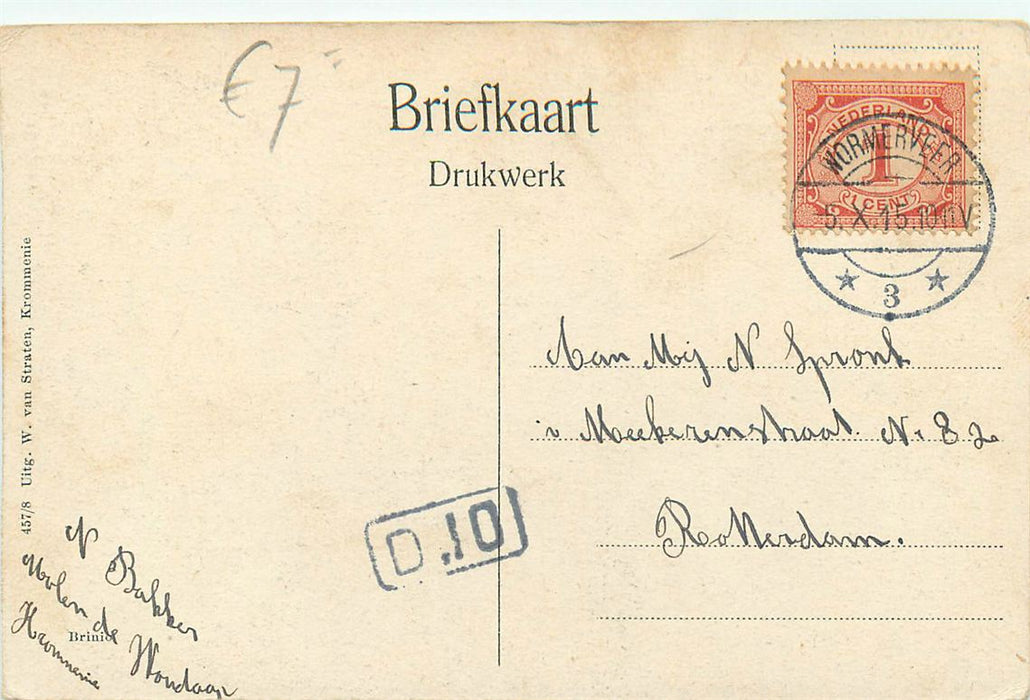 €7
Briefkaart
Drukwerk
NEDERLAND
1
1 CENT
WORMERVEER
5.X.15.10 NV
3
Aan Mej N Spronk
Meekerenstraat N. 82
Rotterdam.
D.10
457/8 Uitg. W. van Straten, Krommenie
N Bakker
Molen de Woudaap
Krommenie
Brinio